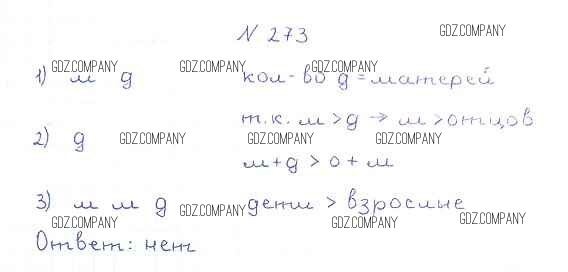 № 273
GDZ.COMPANY
GDZ.COMPANY GDZ.COMPANY GDZ.COMPANY
1) м д кол-во д = матерей
т.к. м > д → м > отцов
2) д GDZ.COMPANY GDZ.COMPANY GDZ.COMPANY
м + д > о + м
3) м м д GDZ.COMPANY дети > взрослые
GDZ.COMPANY GDZ.COMPANY GDZ.COMPANY
Ответ: нет